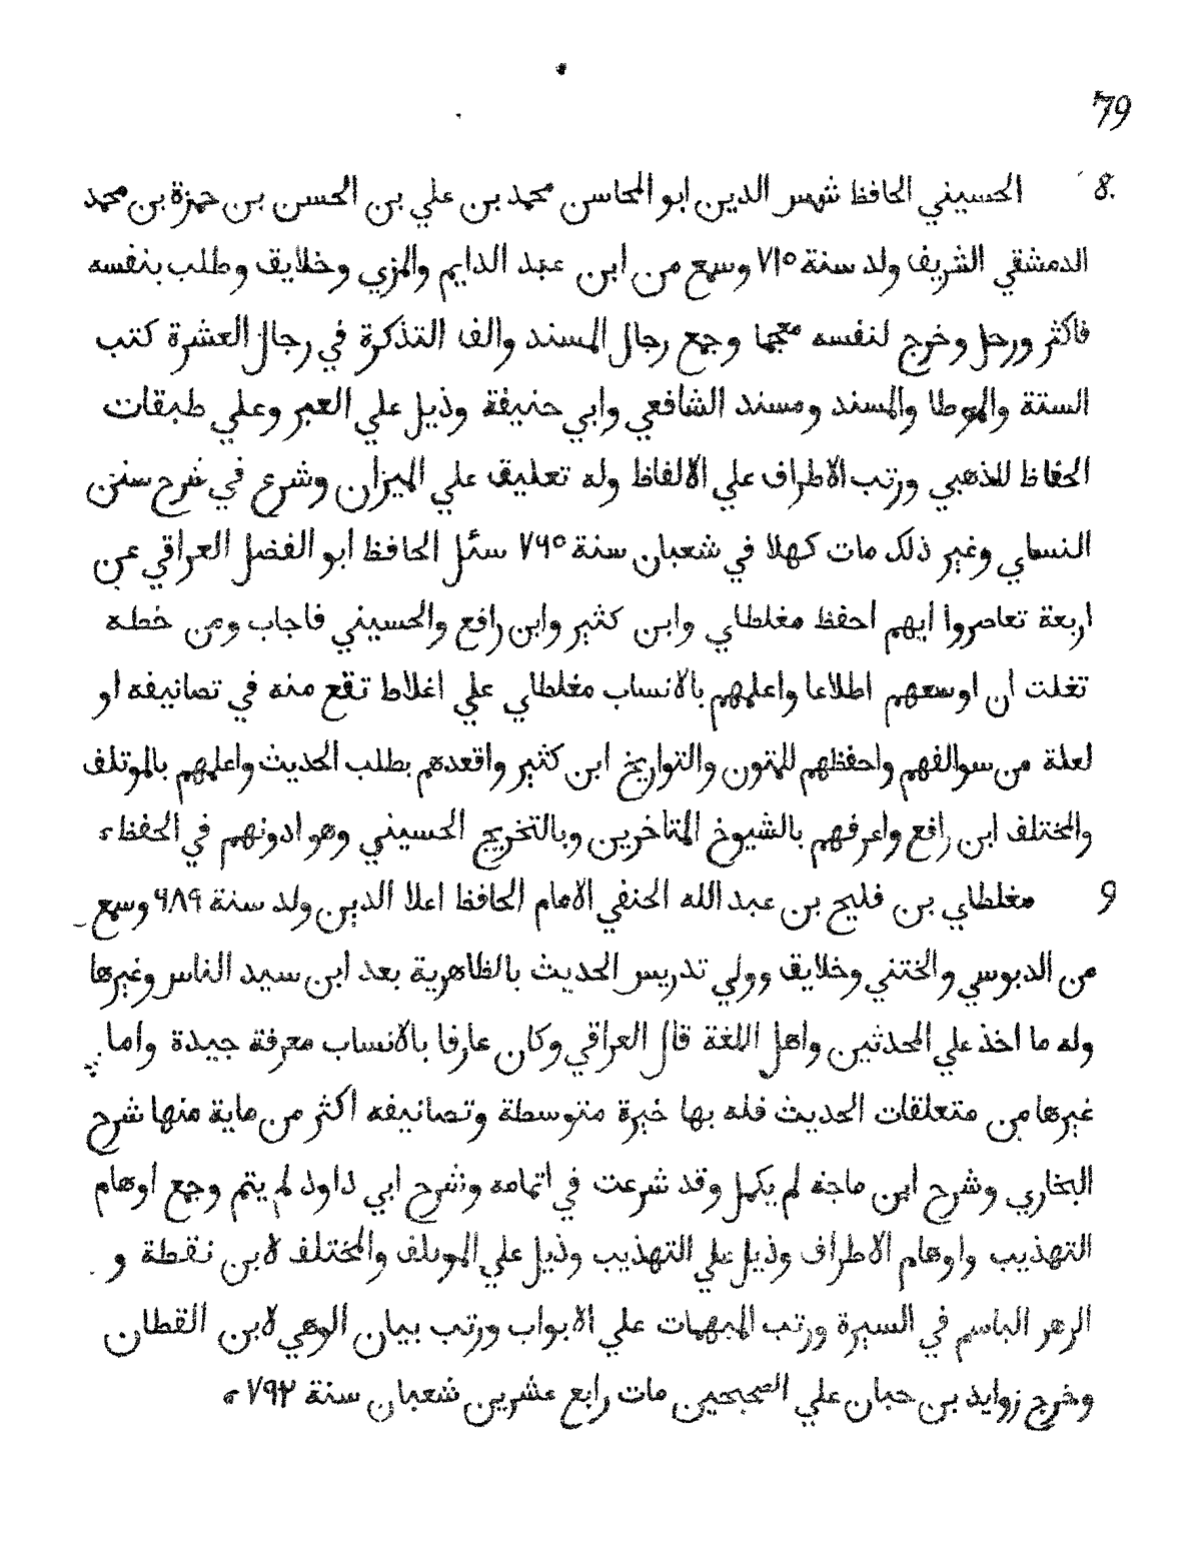 79
8. الحسيني الحافظ شمس الدين ابو المحاسن محمد بن علي بن الحسن بن حمزة بن محمد
الدمشقي الشريف ولد سنة ٧١٥ وسمع من ابن عبد الدايم والمزي وخلايق وطلب بنفسه
فاكثر ورحل وخرج لنفسه معجما وجمع رجال المسند والف التذكرة في رجال العشرة كتب
الستة والموطا والمسند ومسند الشافعي وابي حنيفة وذيل علي العبر وعلي طبقات
الحفاظ للذهبي ورتب الاطراف علي الالفاظ وله تعليق علي الميزان وشرع في شرح سنن
النساي وغير ذلك مات كهلا في شعبان سنة ٧٦٥ سئل الحافظ ابو الفضل العراقي عن
اربعة تعاصروا ايهم احفظ مغلطاي وابن كثير وابن رافع والحسيني فاجاب ومن خطه
تغلت ان اوسعهم اطلاعا واعلمهم بالانساب مغلطاي علي اغلاط تقع منه في تصانيفه او
لعلة من سوالفهم واحفظهم للمتون والتواريخ ابن كثير واقعدهم بطلب الحديث واعلمهم بالموتلف
والمختلف ابن رافع واعرفهم بالشيوخ المتاخرين وبالتخريج الحسيني وهو ادونهم في الحفظ ء
9 مغلطاي بن فليح بن عبد الله الحنفي الامام الحافظ اعلا الدين ولد سنة ٦٨٩ وسمع
من الدبوسي والختني وخلايق وولي تدريس الحديث بالظاهرية بعد ابن سيد الناس وغيرها
وله ما اخذ علي المحدثين واهل اللغة قال العراقي وكان عارفا بالانساب معرفة جيدة واما
غيرها من متعلقات الحديث فله بها خبرة متوسطة وتصانيفه اكثر من ماية منها شرح
البخاري وشرح ابن ماجه لم يكمل وقد شرعت في اتمامه وشرح ابي داود لم يتم وجمع اوهام
التهذيب واوهام الاطراف وذيل علي التهذيب وذيل علي الموتلف والمختلف لابن نقطة و
الزهر الباسم في السيرة ورتب المبهمات علي الابواب ورتب بيان الوهي لابن القطان
وخرج زوايد بن حبان علي الصحيحين مات رابع عشرين شعبان سنة ٧٩٢ ء